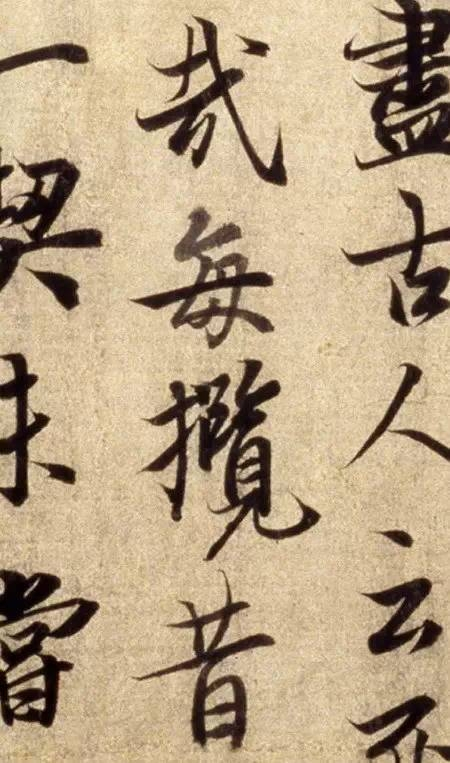 盡古人云死
哉每攬昔
一契未嘗